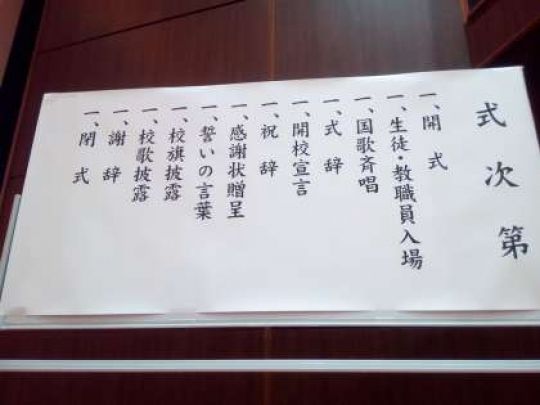 式次第
一、開式
一、生徒・教職員入場
一、国歌斉唱
一、式辞
一、開校宣言
一、祝辞
一、感謝状贈呈
一、誓いの言葉
一、校旗披露
一、校歌披露
一、謝辞
一、閉式